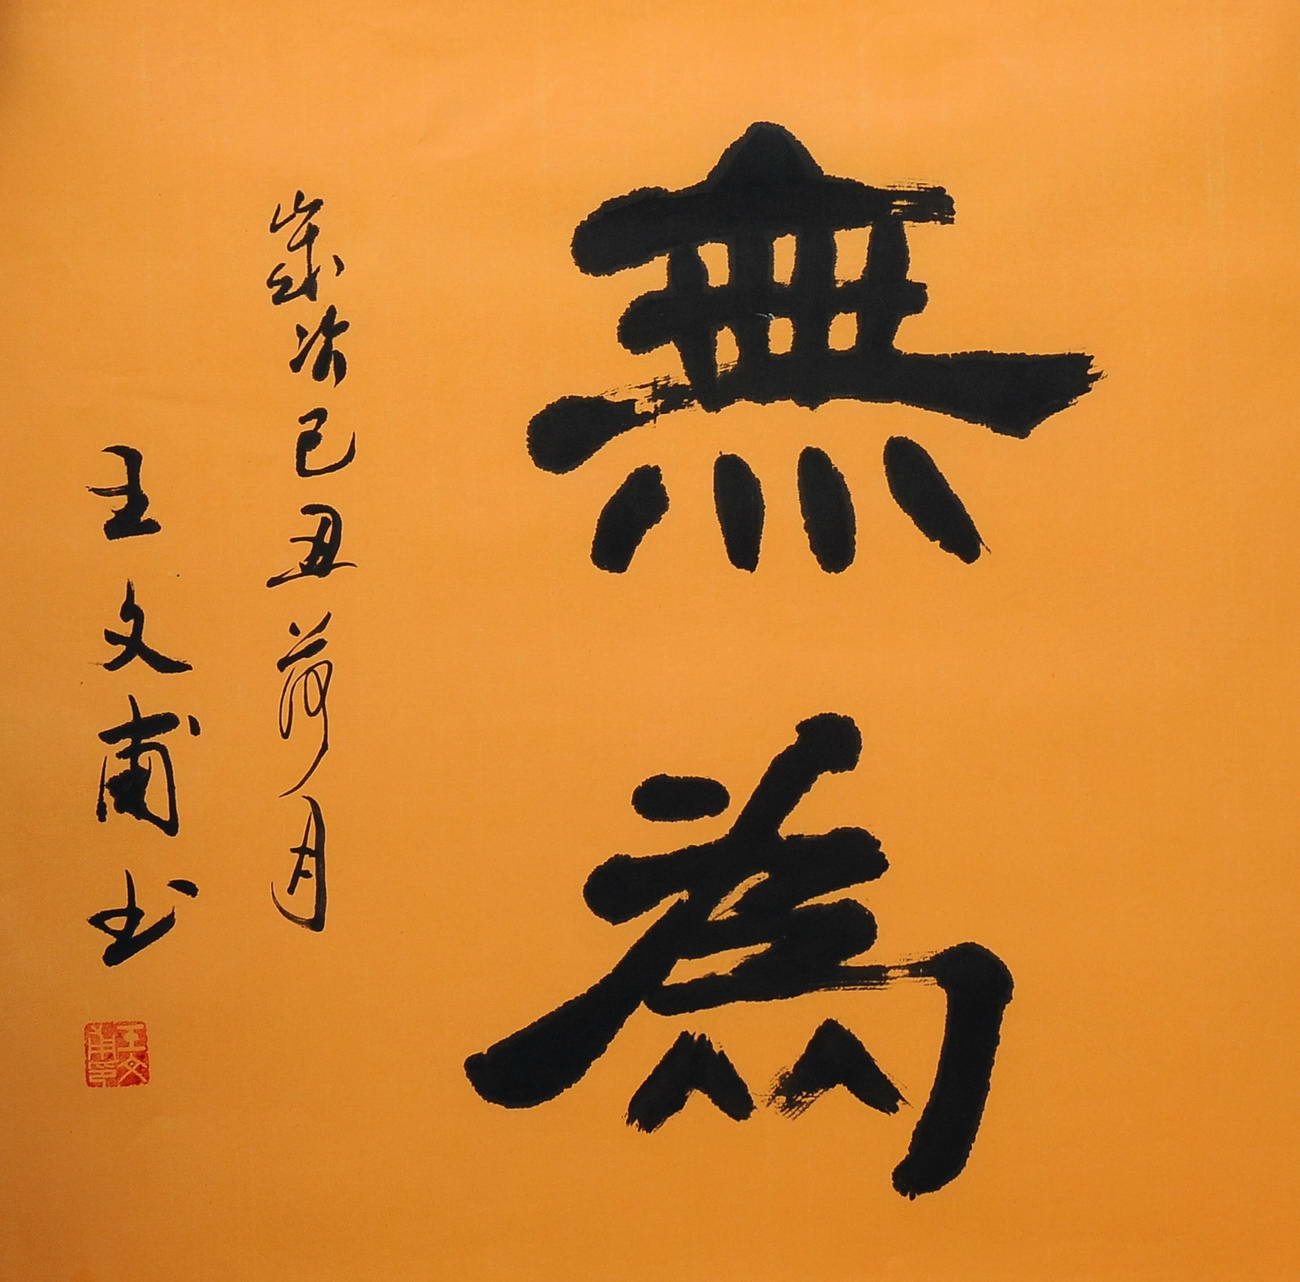 無為
歲次己丑荷月
王文甫书
王文甫印